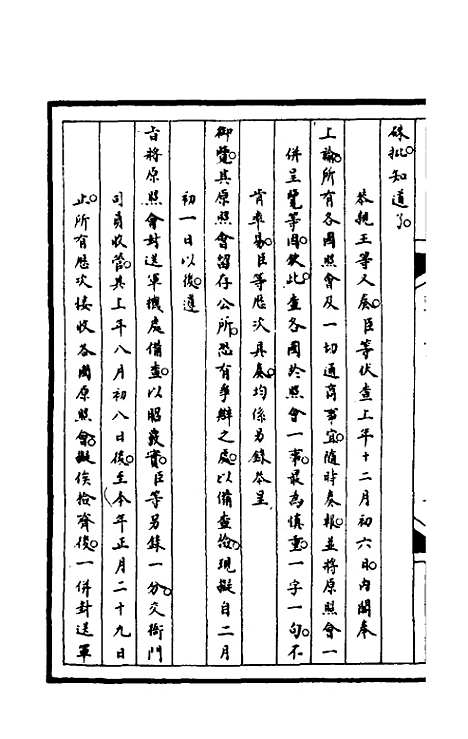 硃批知道了。
恭親王等又奏。臣等伏查上年十二月初六日。內閣奉
上諭。所有各國照會及一切通商事宜。隨時奏報。並將原照會一
併呈覽等因。欽此。查各國於照會一事。最為慎重。一字一句。不
肯率易。臣等歷次具奏。均係另錄恭呈
御覽。其原照會留存公所。恐有爭辯之處。以備查檢。現擬自二月
初一日以後。遵
旨將原照會封送軍機處備查。以昭覈實。臣等另錄一分。交衙門
司員收管。其上年八月初八日後。至今年正月二十九日
止。所有歷次接收各國原照會。擬俟檢齊後。一併封送軍